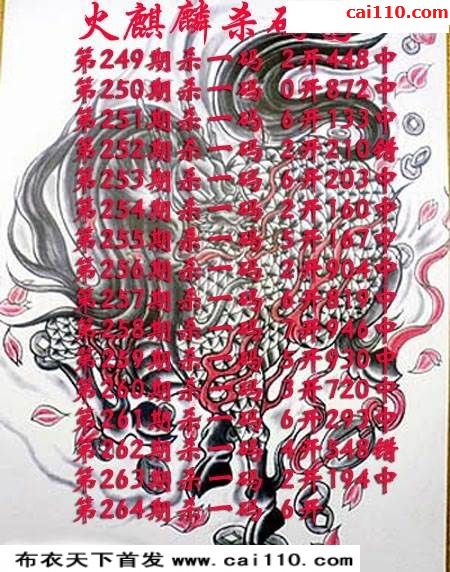 cai110.com
火麒麟杀码
第249期杀一码 2开448中
第250期杀一码 0开872中
第251期杀一码 6开133中
第252期杀一码 2开210错
第253期杀一码 6开203中
第254期杀一码 2开160中
第255期杀一码 5开167中
第256期杀一码 2开904中
第257期杀一码 6开819中
第258期杀一码 7开946中
第259期杀一码 5开930中
第260期杀一码 3开720中
第261期杀一码 6开293中
第262期杀一码 4开548错
第263期杀一码 2开194中
第264期杀一码 6开
布衣天下首发 www.cai110.com